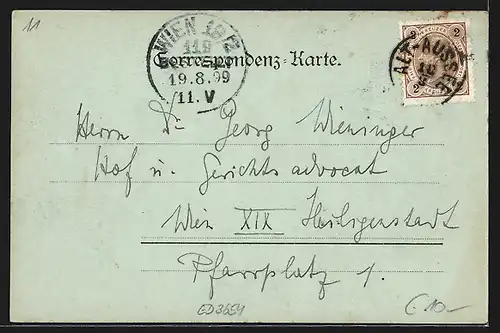 11
WIEN 19/2
119
19.8.99
11.V
Correspondenz-Karte.
2 2
ALT-AUSSEE
Herrn Dr Georg Wieninger
Hof u. Gerichtsadvocat
Wien XIX Heiligenstadt
Pfarrplatz 1.